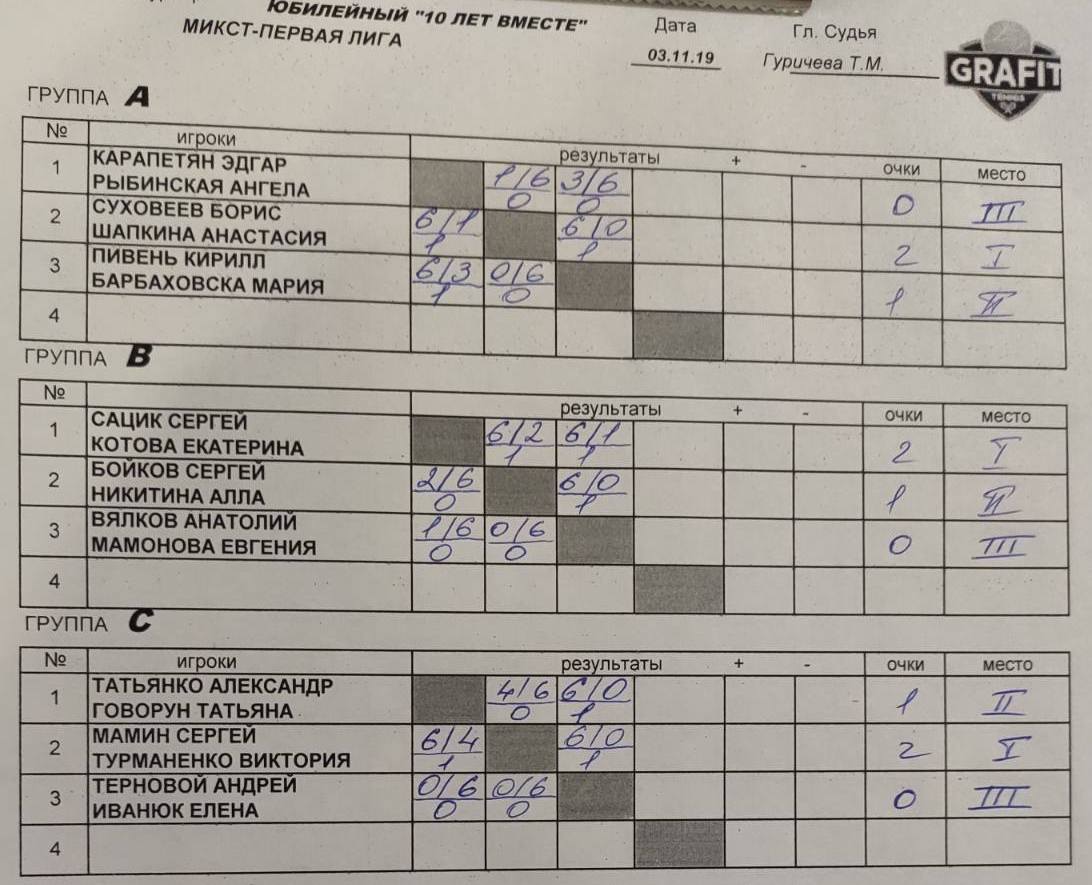 ЮБИЛЕЙНЫЙ "10 ЛЕТ ВМЕСТЕ"
МИКСТ-ПЕРВАЯ ЛИГА
Дата
03.11.19
Гл. Судья
Гуричева Т.М.
GRAFIT
TENNIS
ГРУППА A
№ игроки результаты + - очки место
1 КАРАПЕТЯН ЭДГАР
РЫБИНСКАЯ АНГЕЛА
1/6 3/6
0 0
0 III
2 СУХОВЕЕВ БОРИС
ШАПКИНА АНАСТАСИЯ
6/1 6/0
1 1
2 I
3 ПИВЕНЬ КИРИЛЛ
БАРБАХОВСКА МАРИЯ
6/3 0/6
1 0
1 II
4
ГРУППА B
№ результаты + - очки место
1 САЦИК СЕРГЕЙ
КОТОВА ЕКАТЕРИНА
6/2 6/1
1 1
2 I
2 БОЙКОВ СЕРГЕЙ
НИКИТИНА АЛЛА
2/6 6/0
0 1
1 II
3 ВЯЛКОВ АНАТОЛИЙ
МАМОНОВА ЕВГЕНИЯ
1/6 0/6
0 0
0 III
4
ГРУППА C
№ игроки результаты + - очки место
1 ТАТЬЯНКО АЛЕКСАНДР
ГОВОРУН ТАТЬЯНА
4/6 6/0
0 1
1 II
2 МАМИН СЕРГЕЙ
ТУРМАНЕНКО ВИКТОРИЯ
6/4 6/0
1 1
2 I
3 ТЕРНОВОЙ АНДРЕЙ
ИВАНЮК ЕЛЕНА
0/6 0/6
0 0
0 III
4